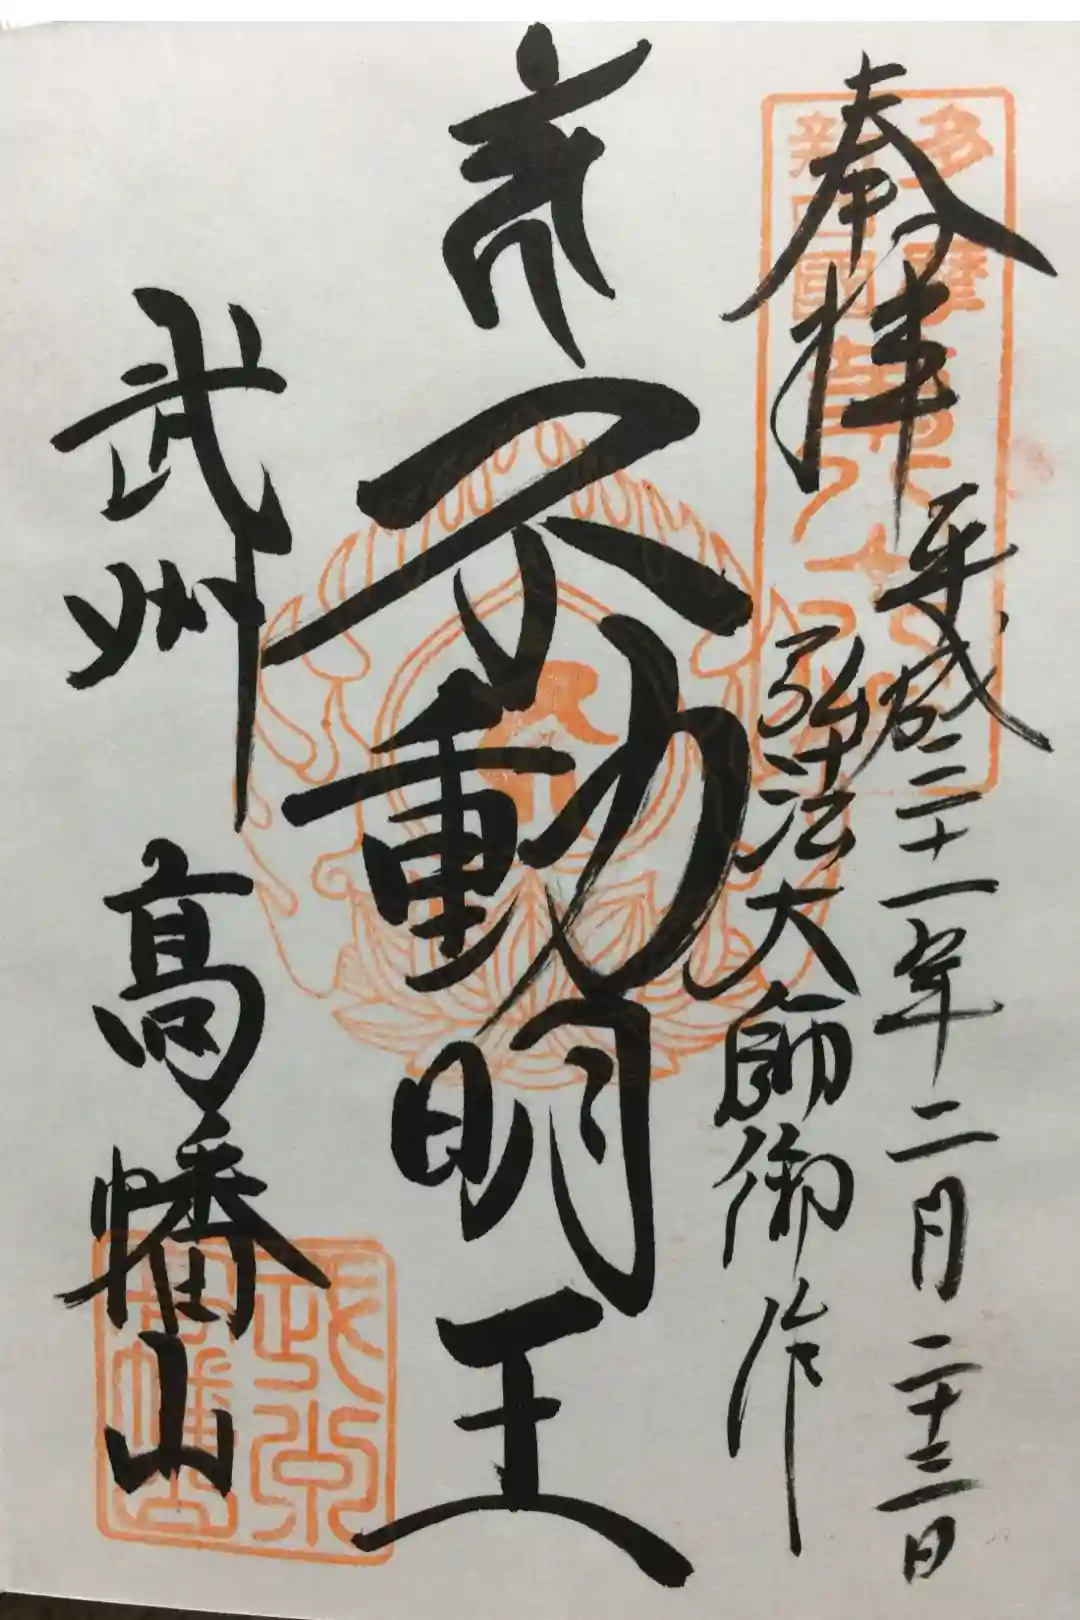 奉拝
平成二十一年二月二十三日
弘法大師御作
不動明王
武州 高幡山
多摩
新四国
武州
高幡山